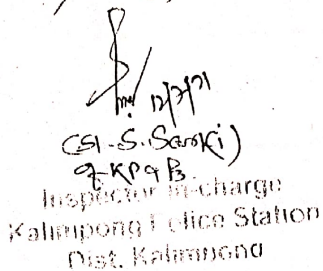 12/7/21
(SI-S. Sarki)
of KPG PS
Inspector in-charge
Kalimpong Police Station
Dist. Kalimpong